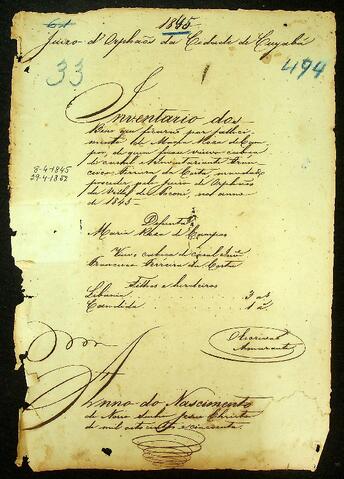 1845
Juizo d'Orphãos da Cidade de Cuyabá
33
494
Inventario dos
Bens que ficarão por falleci-
mento de Maria Rosa de Cam-
pos, de quem ficou viuvo cabeça
de casal Inventariante Fran-
cisco Ferreira da Costa, mandado
proceder pelo Juizo de Orphãos
da Villa de no anno
de 1845
8-4-1845
29-4-1852
Defunta
Maria Rosa de Campos
Viuvo cabeça de casal
Francisco Ferreira da Costa
Filhos e herdeiros
Libania 3 as
Candida 1 a
Escrivão
Anno do Nascimento
de Nosso Senhor Jesus Christo
de mil oito centos e cincoenta